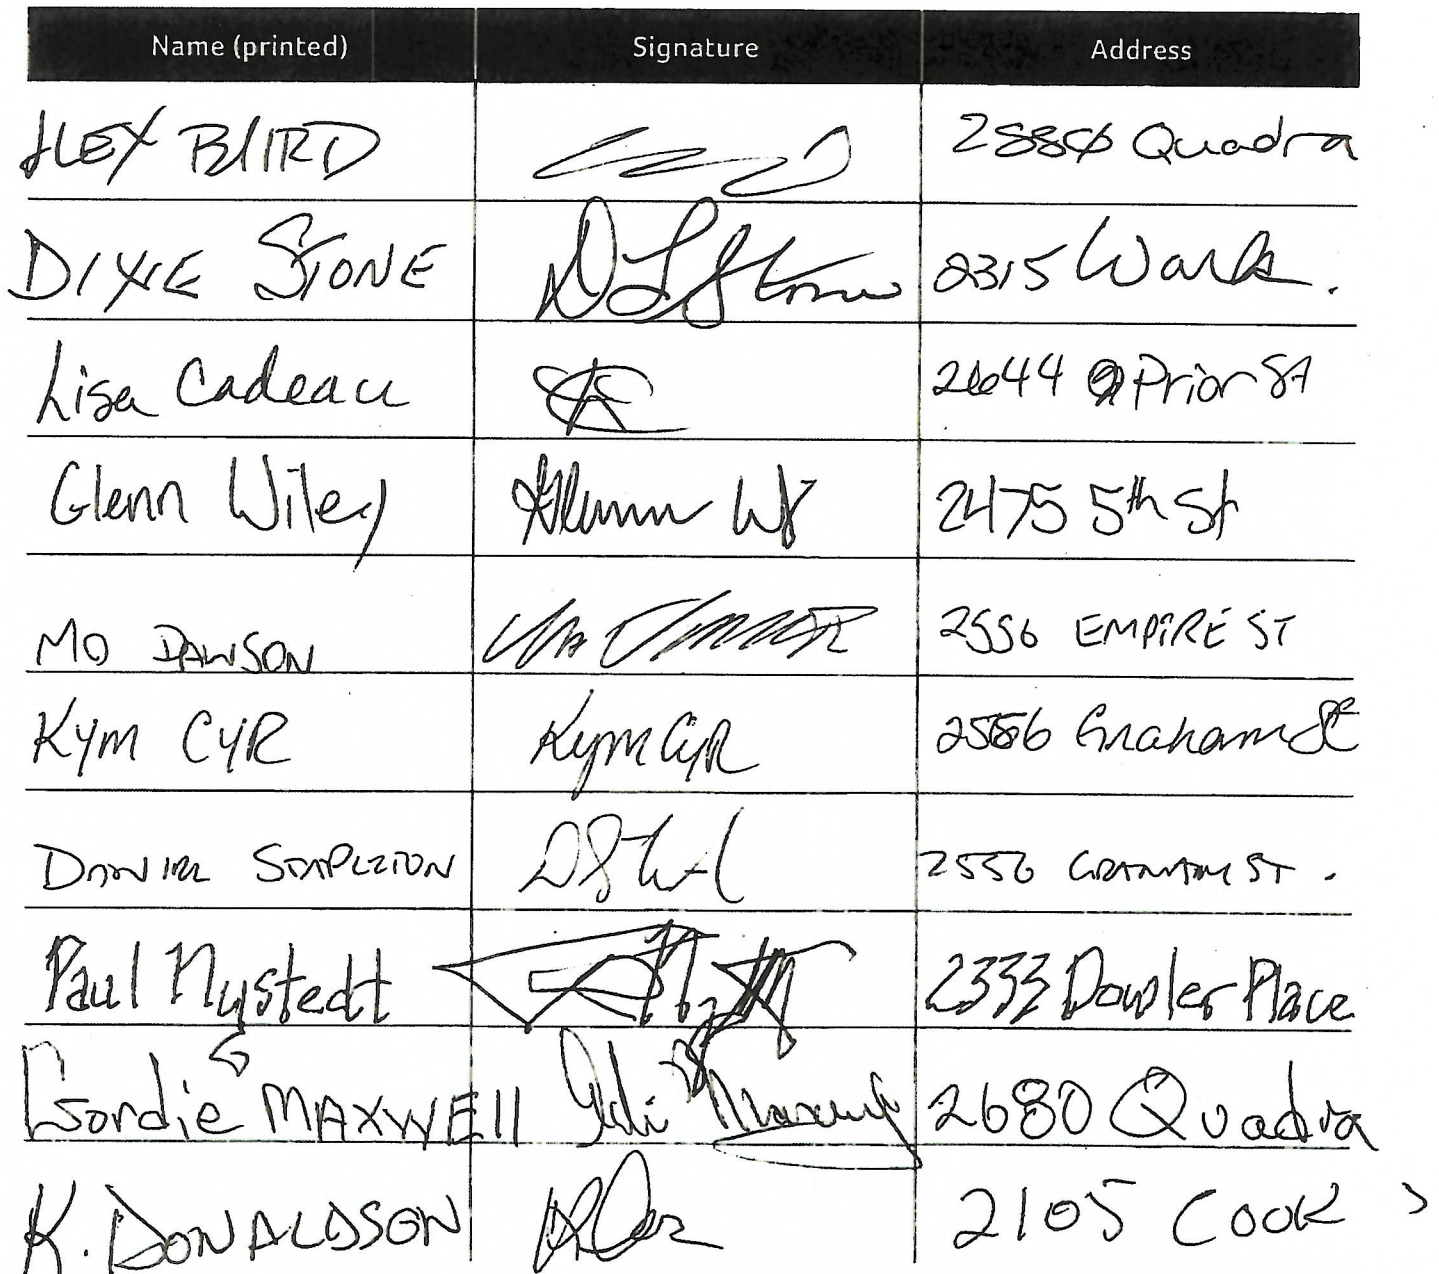 Name (printed) Signature Address
ALEX BAIRD Quadra
DIXIE STONE DLStone 2315 Wark.
Lisa Cadeau 2644 Prior St
Glenn Wiley Glenn W 2475 5th St
MO DAWSON 2556 EMPIRE ST
KYM CYR Kym Cyr 2556 Graham St
DANIEL STAPLETON 2556 GRAHAM ST.
Paul Nystedt 2333 Dowler Place
Gordie MAXWELL 2680 Quadra
K. DONALDSON 2105 COOK